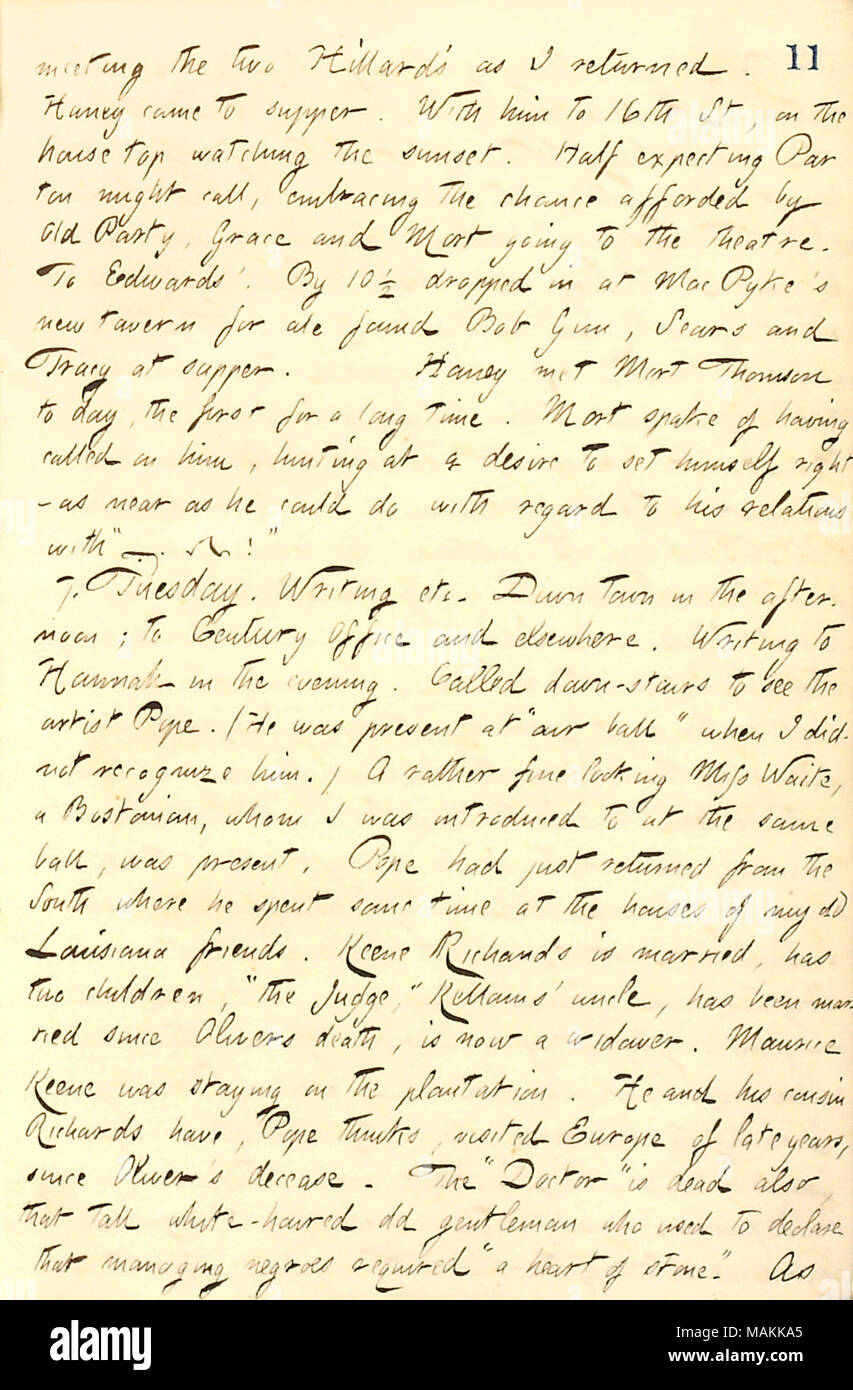 11
meeting the two Hillards as I returned.
Haney came to supper. With him to 16th St, on the
house top watching the sunset. Half expecting Par
ton might call, embracing the chance afforded by
Old Party, Grace and Mort going to the theatre.
To Edwards'. By 10 1/2 dropped in at Mac Pyke's
new tavern for ale found Bob Gun, Sears and
Tracy at supper. Haney met Mort Thomson
to day, the first for a long time. Mort spake of having
called on him, hinting at a desire to set himself right
-as near as he could do with regard to his relations
with "
7. Tuesday. Writing etc. Down town in the after-
noon; to Century Office and elsewhere. Writing to
Hannah in the evening. Called down-stairs to see the
artist Pope. (He was present at "our ball" when I did-
not recognize him.) A rather fine looking Miss Waite,
a Bostonian, whom I was introduced to at the same
ball, was present. Pope had just returned from the
South where he spent some time at the houses of my old
Louisiana friends. Keene Richards is married, has
two children, "the Judge," Kellams' uncle, has been mar-
ried since Olivers death, is now a widower. Maurice
Keene was staying on the plantation. He and his cousin
Richards have, Pope thinks, visited Europe of late years,
since Oliver's decease. The "Doctor" is dead also,
that tall white-haired old gentleman who used to declare
that managing negroes required "a heart of stone." As
alamy
Image ID: MAKKA5
www.alamy.com